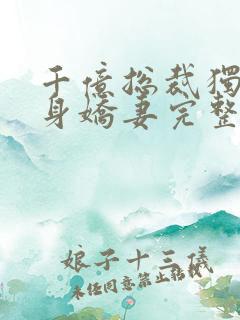 千億總裁獨
身嬌妻完整
娘子十三儀
未任同意禁止转载